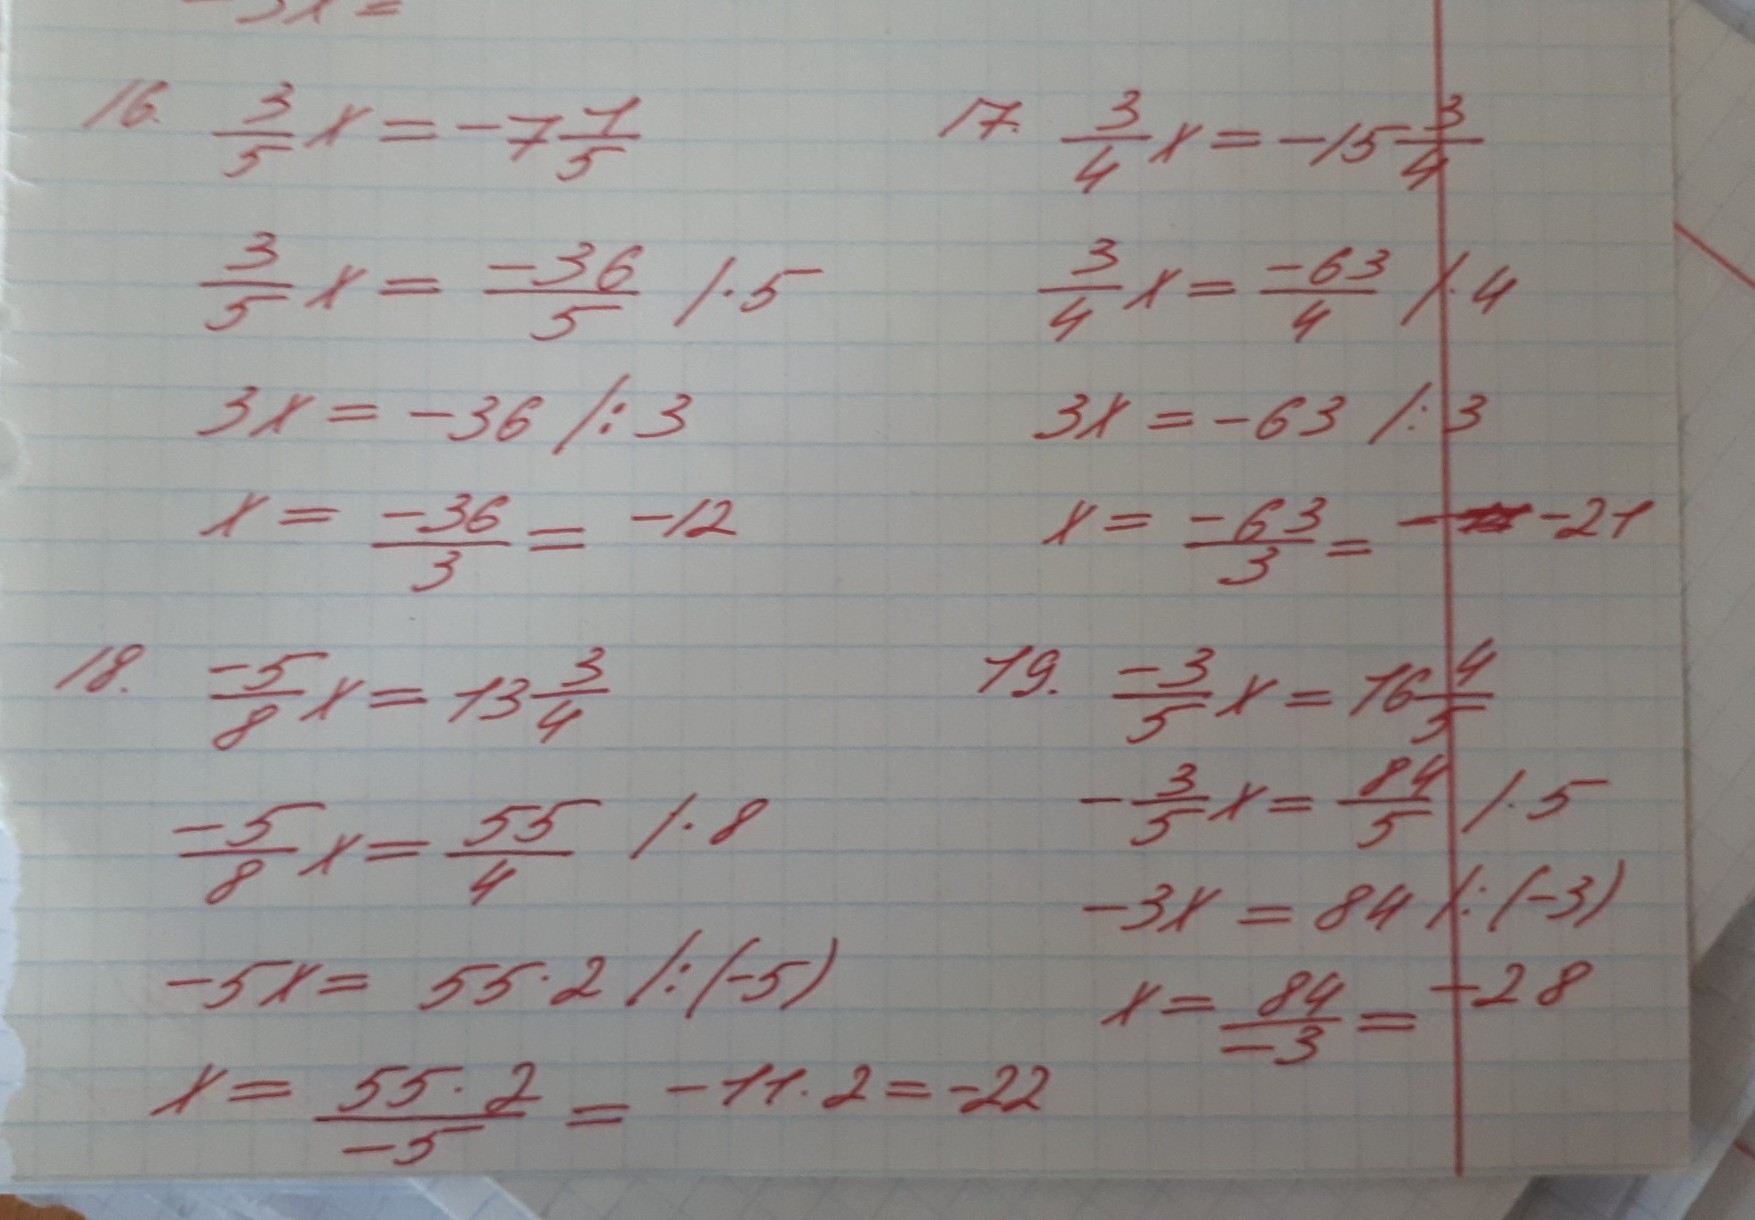 -3x =
16. 3/5 x = -7 1/5
3/5 x = -36/5 /·5
3x = -36 /:3
x = -36/3 = -12
17. 3/4 x = -15 3/4
3/4 x = -63/4 /·4
3x = -63 /:3
x = -63/3 = - -21
18. -5/8 x = 13 3/4
-5/8 x = 55/4 /·8
-5x = 55·2 /:(-5)
x = 55·2/-5 = -11·2 = -22
19. -3/5 x = 16 4/5
-3/5 x = 84/5 /·5
-3x = 84 /:(-3)
x = 84/-3 = -28